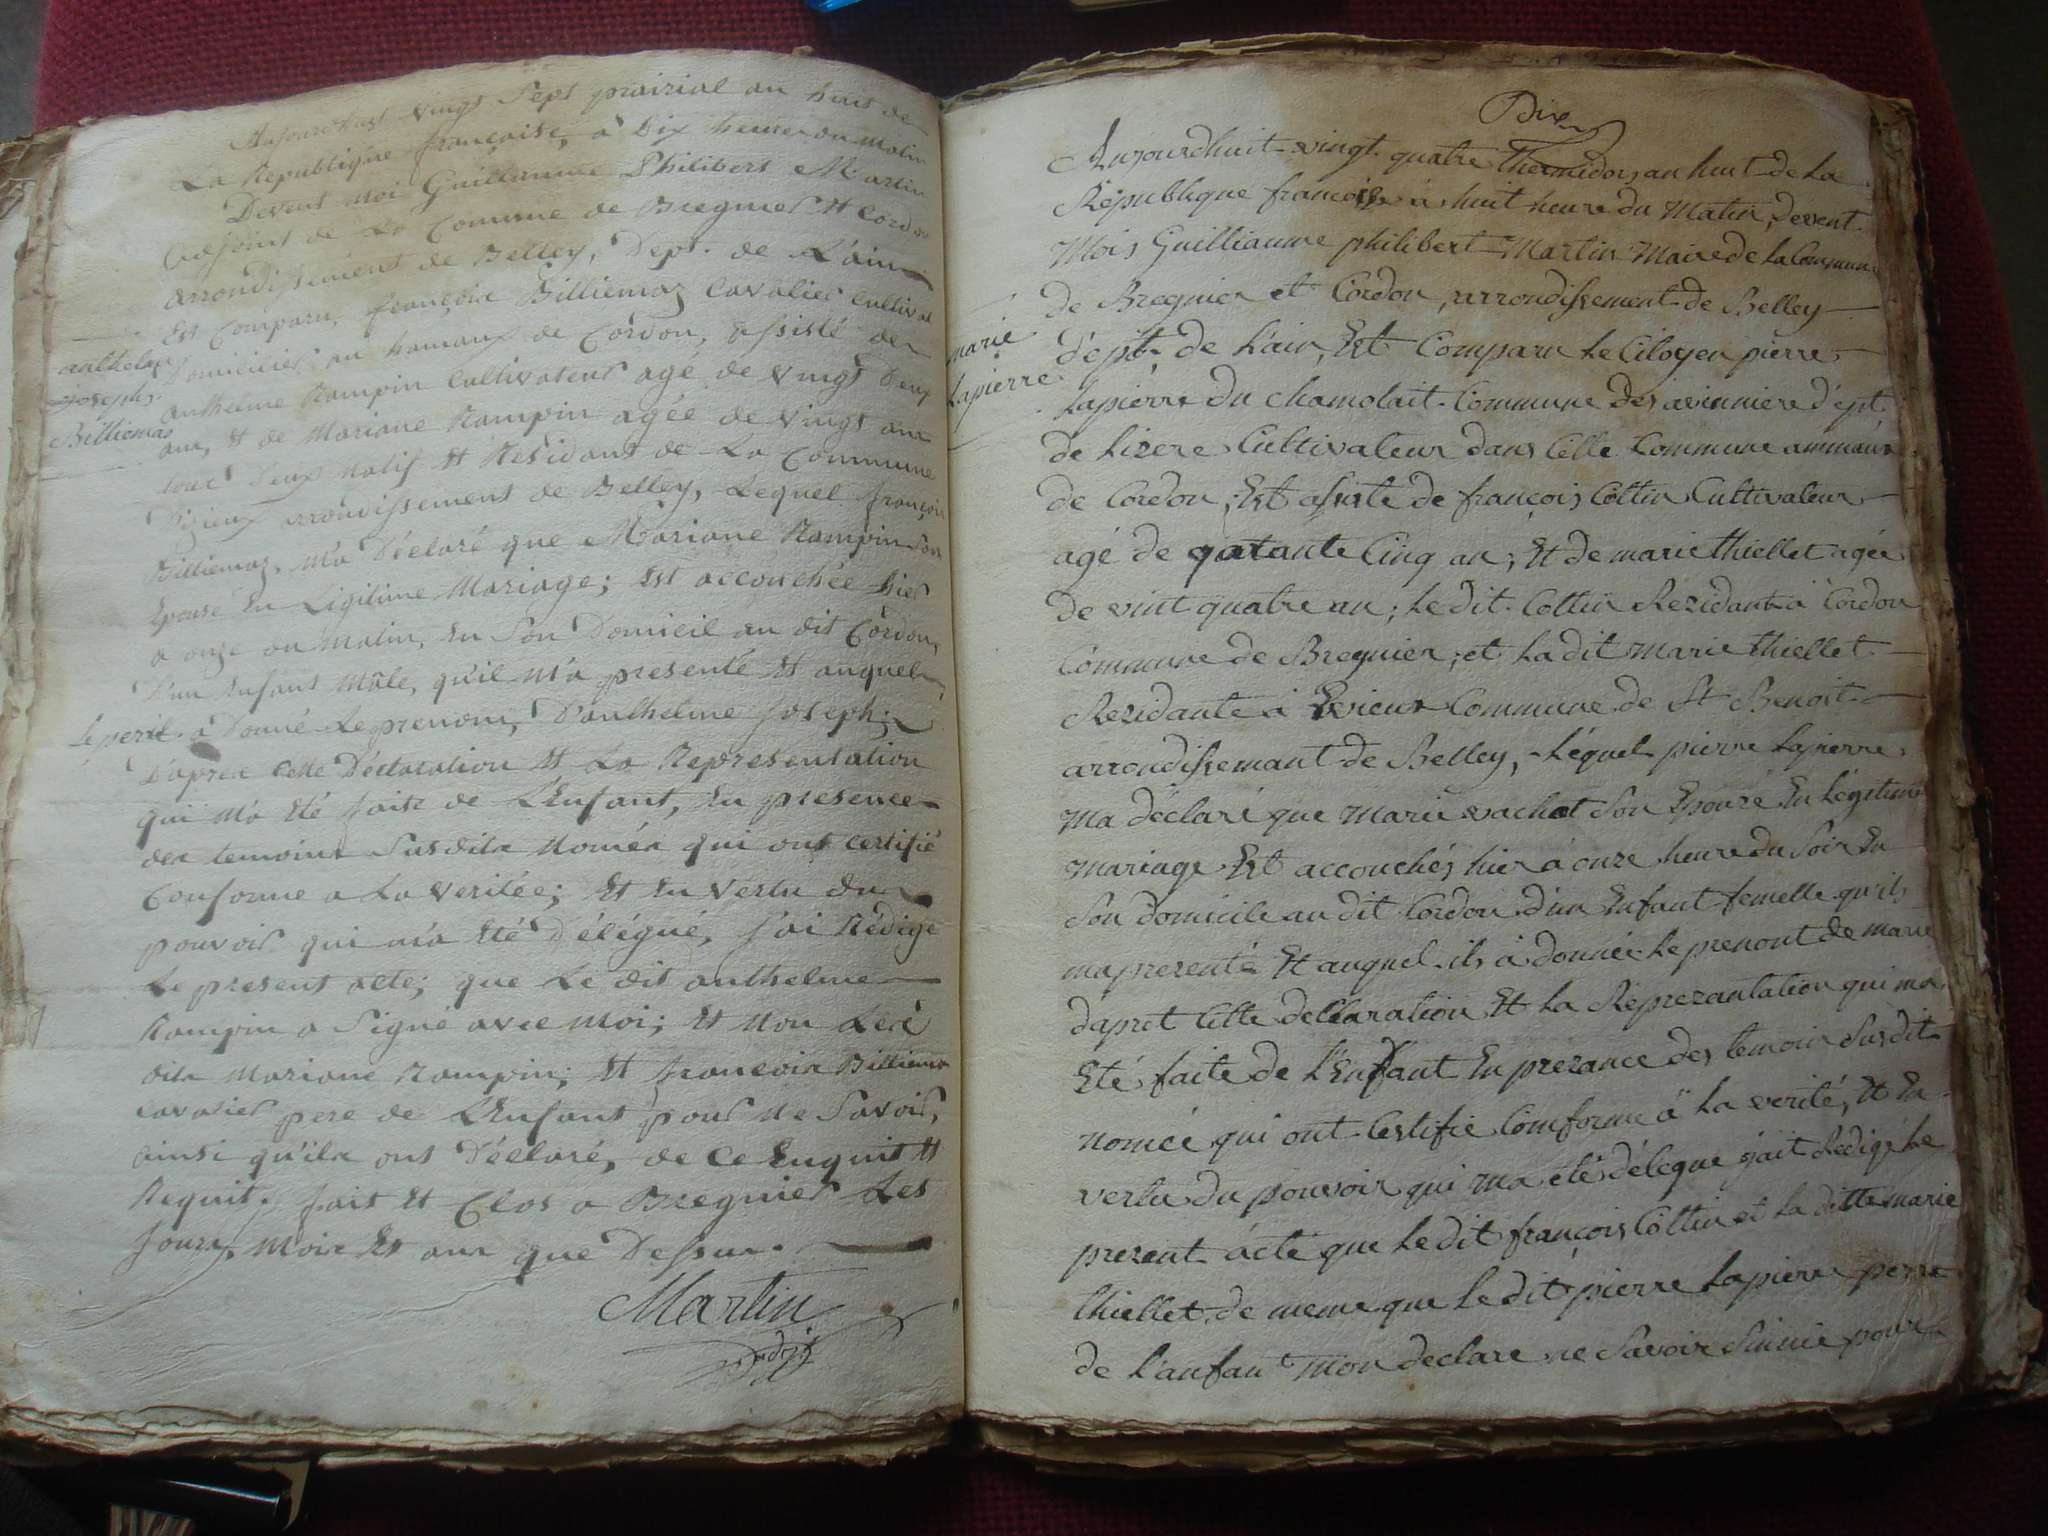 Aujourd'huy vingt sept prairial an huit de
La Republique françaite, à Dix heure du matin
Devent moi Guillaume Philibert Martin
Adjoint de La Commune de Bregnier Et Cordon
arrondissement de Belley, Dept. de L'ain
Est Comparu, françoix Billiemaz Cavalier Cultivat
anthelme
Joseph
Billiemaz
Domicilier au hamaux de Cordon, assisté des
anthelme Rampin Cultivateur agé de vingt Deux
ans, Et de Mariane Rampin agée de vingt ans
tous Deux Natif Et Residant de La Commune
D'izieux arrondissement de Belley, Lequel françois
Billiemaz, m'a Déclaré que Mariane Rampin Son
Epouse En Ligitime Mariage; Est accouchée hier
a onze du Matin, En Son Domicil au dit Cordon,
D'un Enfant Mâle, qu'il m'a presenté Et auquel
à Donné Le prenom, D'anthelme Joseph;
D'aprex Cette Déclaration Et La Representation
qui m'a Eté faite de L'Enfant, En presence
des temoins Susdits Només qui ont certifié
Conforme a La veritée; Et En vertu du
pouvoir qui m'a Eté Délégué, J'ai Rédigé
Le present acte; que Le dit anthelme
Rampin a Signé avec Moi; Et Non La
dite Mariane Rampin; Et francoix Billiemaz
Cavalier pere de L'Enfant pour Ne Savoir,
ainsi qu'ils ont Déclaré, de Ce Enquit Et
Requit. fait Et Clos a Bregnier Les
Jours, Mois Et ans que Dessus.
Martin
adjt
Dix
Aujourdhuit vingt quatre Thermidor, an huit de La
République françoise à huit heure du Matin, devent
Mois Guilliaume philibert Martin Maire de La Commune
de Bregnier et Cordon, arrondissement de Belley
marie
Lapierre
Dépt. de L'ain, Est Comparu Le Citoyen pierre
Lapierre du Chamolait Commune des avinniere d'épt
de Lizere Cultivateur dans Cette Commune
de Cordon, Est assisté de françois Cottin Cultivateur
agé de qatante Cinq an; Et de marie thiellet agée
de vint quatre an; Le dit Cottin Rezidant à Cordon
Commune de Bregnier; et La dit marie thiellet
Rezidante à Evieux Commune de St Benoit
arrondissemant de Belley, Léquel pierre Lapierre
ma déclaré que marie vachot Son Epouze En Légitime
mariage Est accouchés hier à onze heure du Soir En
Son domicile au dit Cordon d'un Enfant femelle qu'ils
maprezenté Et auquel ils à donnée Le prenont de marie
dapret Cette dellaration Et La Reprezantation qui ma
Eté faite de l'Enfant En prezance des temoin Susdit
nomée qui ont Certifie Comforme à La verité, Et En
vertu du pouvoir qui ma été délegué jait Redigé Le
prezent acte que Le dit françois Cottin et La ditte marie
thiellet de meme que Le dit pierre Lapierre perre
de l'anfant mon declare ne Savoir Sinnie pour